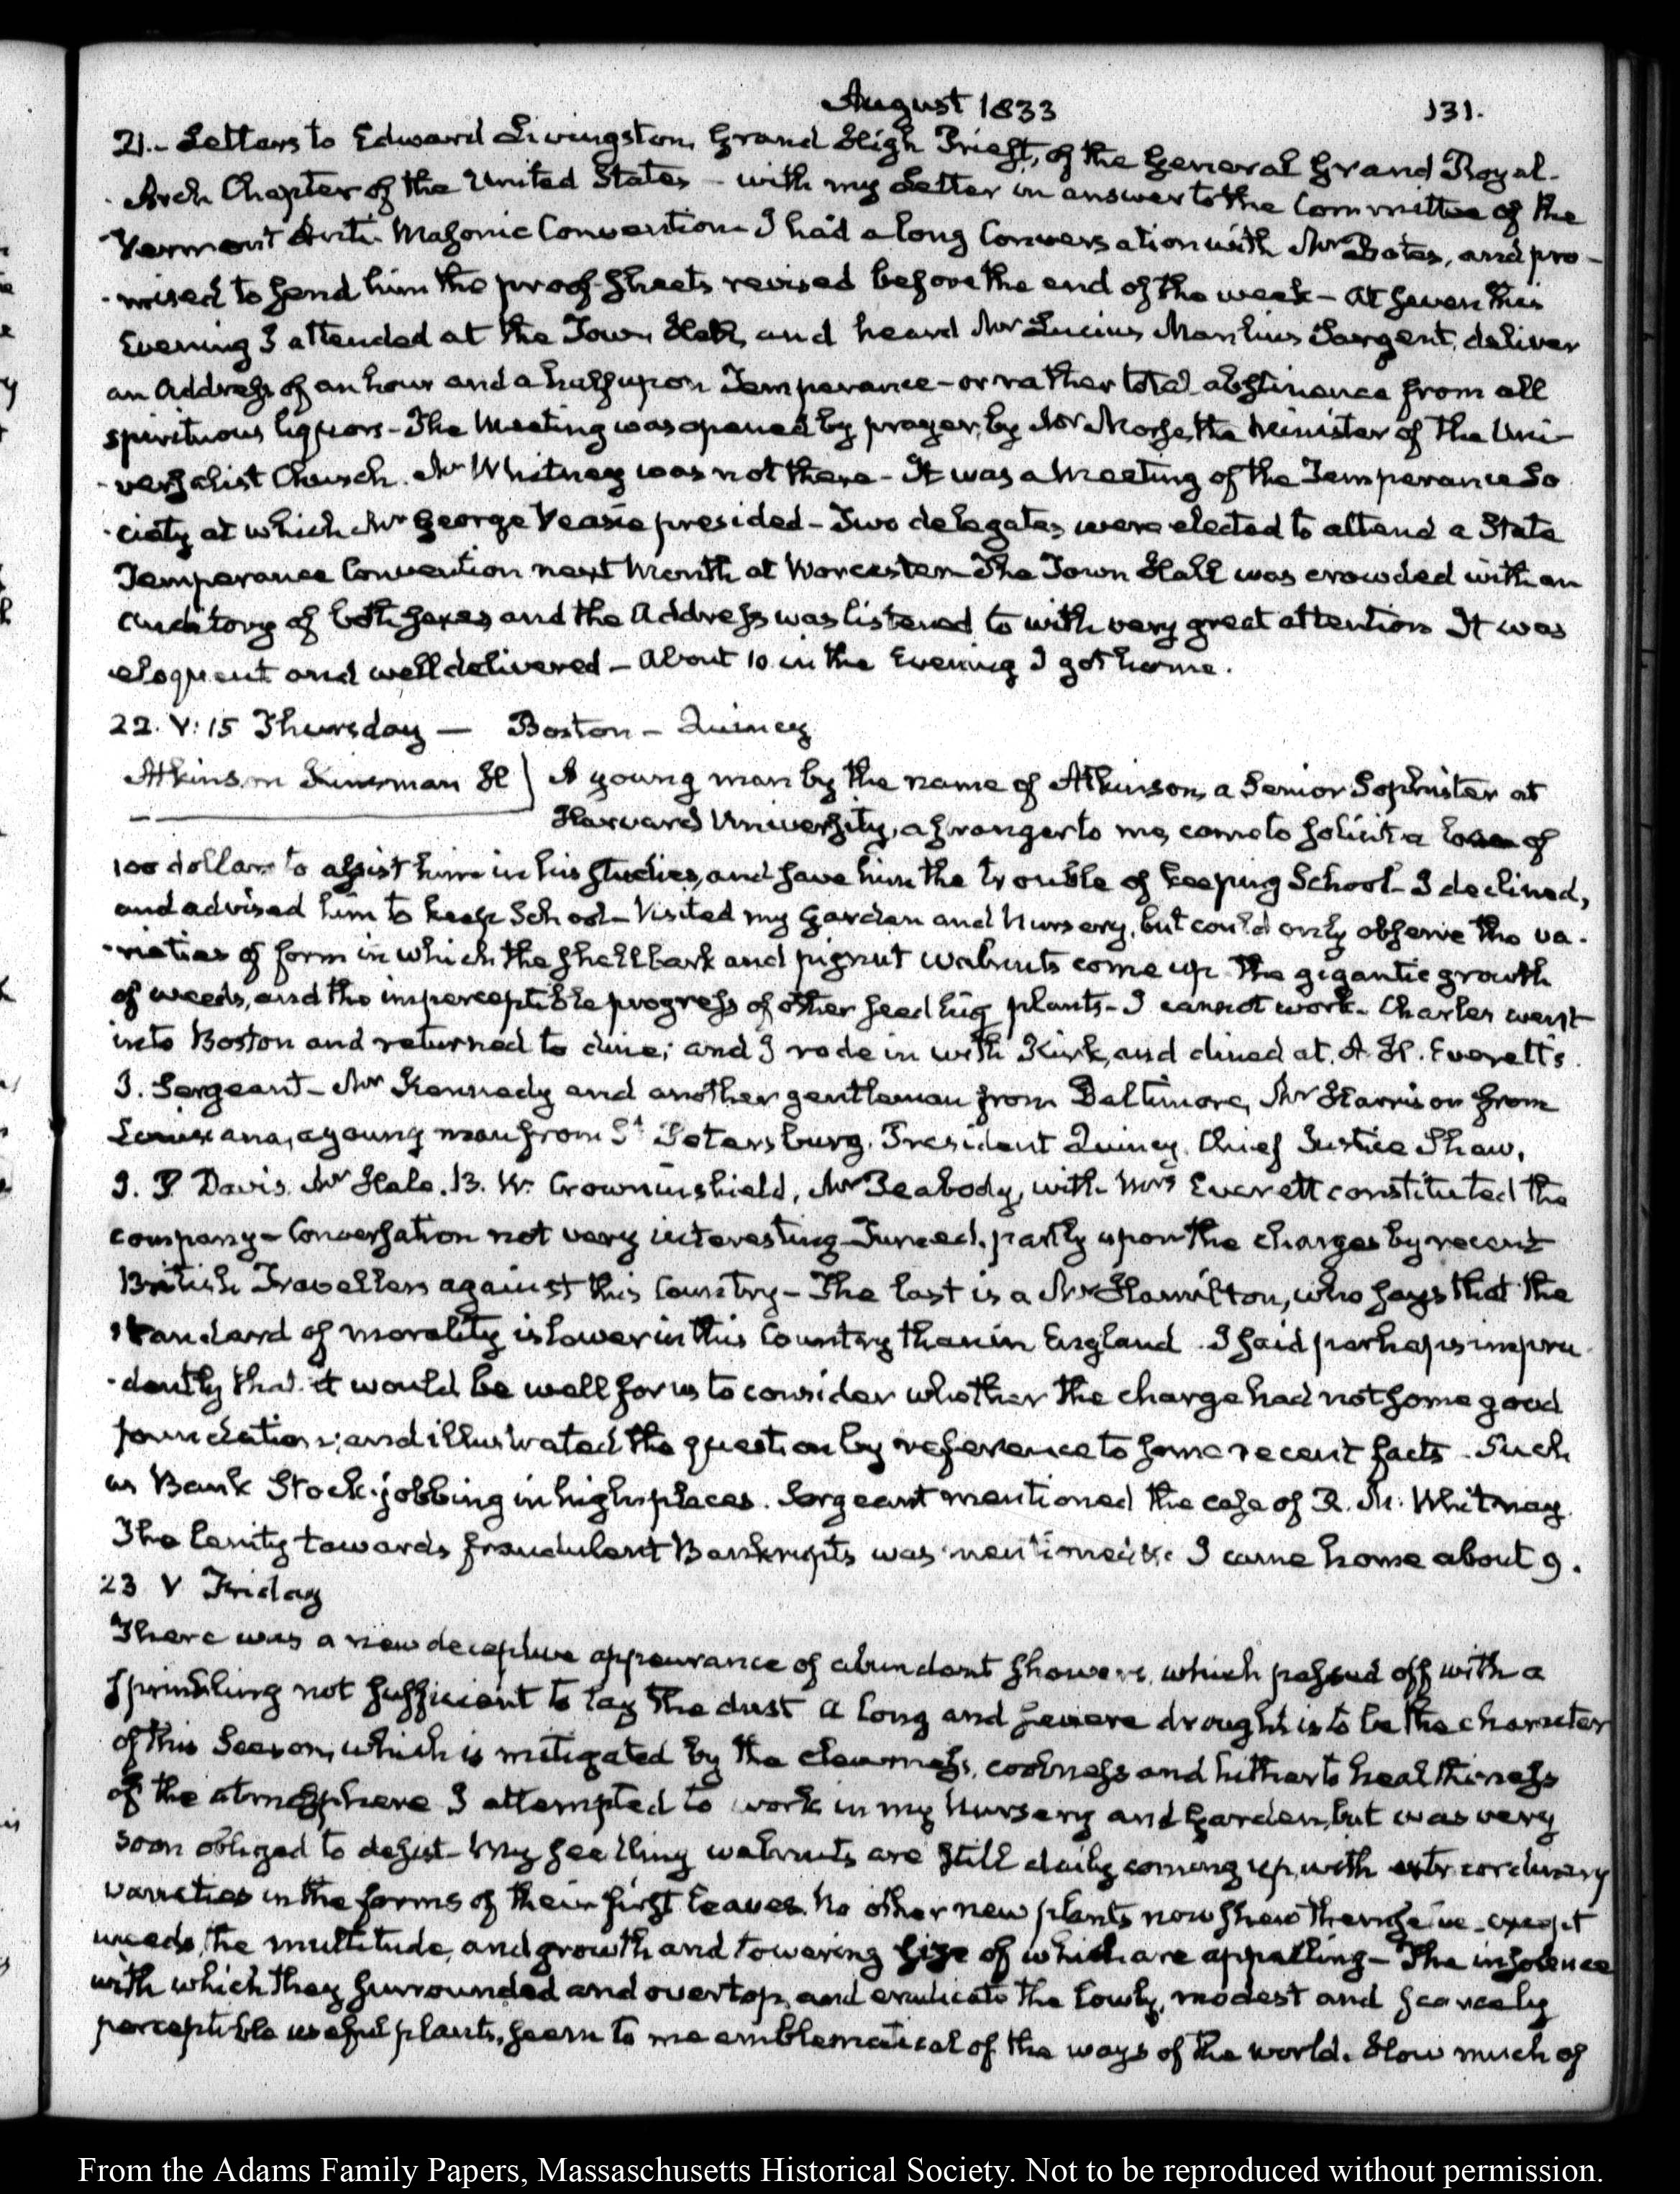 August 1833 131.
21.- Letters to Edward Livingston, Grand High Priest, of the General Grand Royal-
Arch Chapter of the United States - with my Letter in answer to the Committee of the
Vermont Anti-Masonic Convention I had a long Conversation with Mr Bates, and pro-
-mised to send him the proof-sheets revised before the end of the week - At seven this
Evening I attended at the Town Hall, and heard Mr Lucius Manlius Sargent, deliver
an Address of an hour and a half upon Temperance - or rather total abstinence from all
spirituous liquors - The Meeting was opened by prayer, by Mr Morse, the Minister of the Uni-
-versalist Church. Mr Whitney was not there - It was a Meeting of the Temperance So
-ciety at which Mr George Veazie presided - Two delegates were elected to attend a State
Temperance Convention next Month at Worcester - The Town Hall was crowded with an
auditory of both sexes and the Address was listened to with very great attention It was
eloquent and well delivered - About 10 in the Evening I got home.
22. V:15 Thursday — Boston - Quincy
Atkinson Kinsman H) A young man by the name of Atkinson, a Senior Sophister at
Harvard University, a stranger to me, came to solicit a loan of
100 dollars to assist him in his studies, and save him the trouble of keeping School - I declined,
and advised him to keep School - Visited my Garden and Nursery, but could only observe the va-
-rieties of form in which the shellbark and pignut walnuts come up the gigantic growth
of weeds, and the imperceptible progress of other seedling plants - I cannot work - Charles went
into Boston and returned to dine; and I rode in with Kirk, and dined at A. H. Everett's.
J. Sergeant - Mr Kennedy and another gentleman from Baltimore, Mr Harrison from
Louisiana, a young man from St Petersburg, President Quincy, Chief Justice Shaw,
J. P. Davis, Mr Hale, B. W. Crowninshield, Mr Peabody, with Mrs Everett constituted the
company - Conversation not very interesting - Turned, partly upon the charges by recent
British Travellers against this Country - The last is a Mr Hamilton, who says that the
standard of morality is lower in this Country than in England. I said perhaps impru-
-dently that it would be well for us to consider whether the charge had not some good
foundation; and illustrated the question by reference to some recent facts. Such
as Bank Stock-jobbing in high places. Sergeant mentioned the case of R. M. Whitney.
The lenity towards fraudulent Bankrupts was mentioned &c I came home about 9.
23 V Friday
There was a new deceptive appearance of abundant showers, which passed off with a
sprinkling not sufficient to lay the dust A long and severe drought is to be the character
of this Season, which is mitigated by the clearness, coolness and hitherto healthiness
of the atmosphere I attempted to work in my Nursery and Garden, but was very
soon obliged to desist - My seedling walnuts are still daily coming up, with extraordinary
varieties in the forms of their first leaves. No other new plants now shew themselve - except
weeds, the multitude, and growth and towering size of which are appalling - The insolence
with which they surrounded and overtop, and eradicate the lowly, modest and scarcely
perceptible useful plants, seem to me emblematical of the ways of the world. How much of
From the Adams Family Papers, Massaschusetts Historical Society. Not to be reproduced without permission.